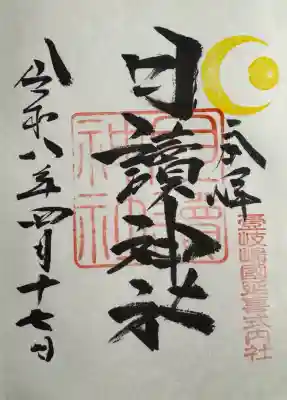 奉拝
壹岐嶋國延喜式内社
月讀神社
令和八年四月十七日